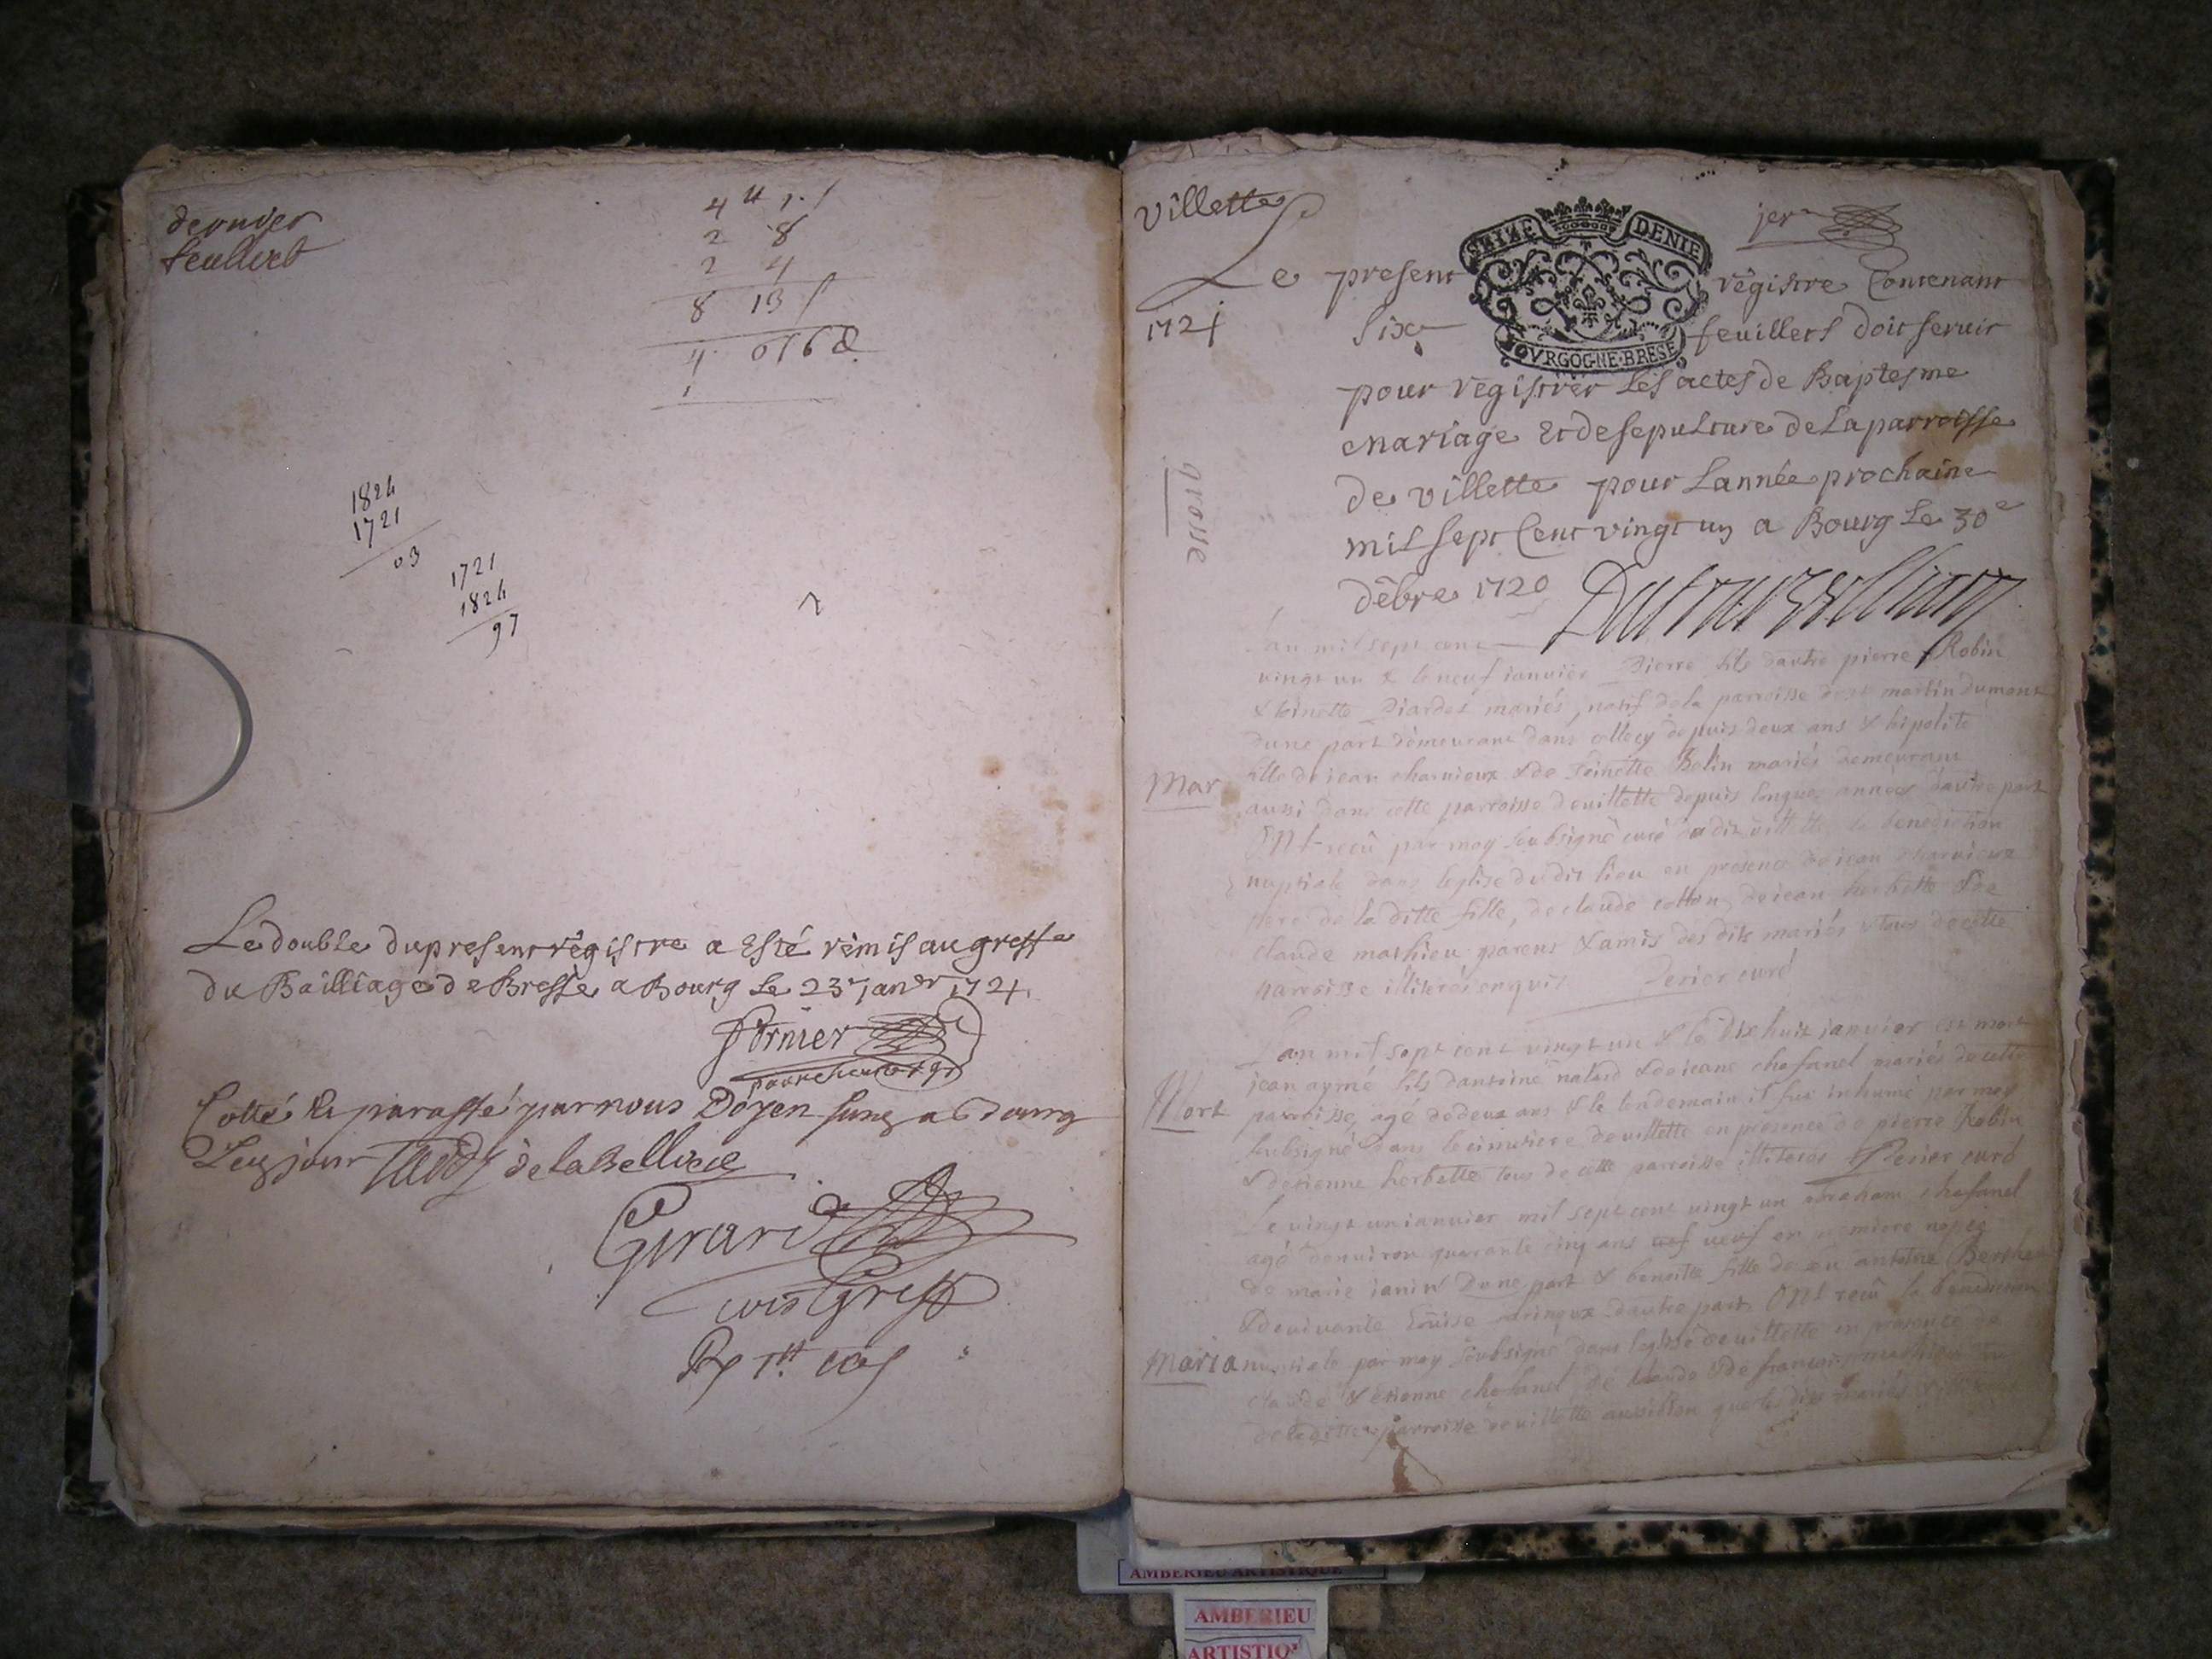 dernier
feulliet
4 4
2 8
2 4
8 13
4 0168
1
1824
1721
03
1721
1824
97
Le double du present régistre a Esté remis au greffe
du Bailliage de Bresse a Bourg Le 23e Janer 1721.
Cotté & paraffé par nous Doyen
de la Bellvere
Girard
Greff
villette
jer
SEIZE DENIE
BOVRGOGNE·BRESE
Le present régistre Contenant
1721
Six feuillets doit servir
pour régistrer Les actes de Baptesme
Mariage Et de sepulture de La parroisse
De villette pour L'année prochaine
mil sept Cent vingt un a Bourg Le 30e
débre 1720
grosse
L'an mil sept cens
vingt un & le neuf janvier Pierre fils d'autre pierre Robin
& toinette Piardet mariés, natif de la parroisse de st martin dumont
dune part demeurant dans celle cy depuis deux ans & hipolite
Mar
fille de jean charvieux & de toinette Belin mariés demeurant
aussi dans cette parroisse de villette depuis longues années d'autre part
Ont recû par moy soubsigné curé dudit villette la benediction
nuptiale dans leglise dudit lieu en presence de jean charvieux
pere de la ditte fille, de claude cotton, de jean herbette & de
claude mathieu parens & amis des dits mariés tous de cette
parroisse illiterés enquis Perier curé
L'an mil sept cent vingt un & le dix huit janvier est mort
Mort
jean aymé fils d'antoine natard & de jeane chafanel mariés de cette
parroisse, agé de deux ans & le lendemain il fut inhumé par moy
soubsigné dans le cimetiere de villette en presence de pierre Robin
& detienne herbette tous de cette parroisse illiterés Perier curé
Le vingt un janvier mil sept cent vingt un abraham chafanel
agé denviron quarante cinq ans veuf en premiere nopce
de marie janin Dune part & benoitte fille de feu antoine
& de vivante Louise d'autre part Ont recû la benediction
Maria
nuptiale par moy soubsigné dans leglise de villette en presence de
claude & etienne chafanel, de claude & de françois mathieu
de parroisse de villette aussibien que les dits mariés
AMBERIEU ARTISTIQUE
AMBERIEU
ARTISTIQ